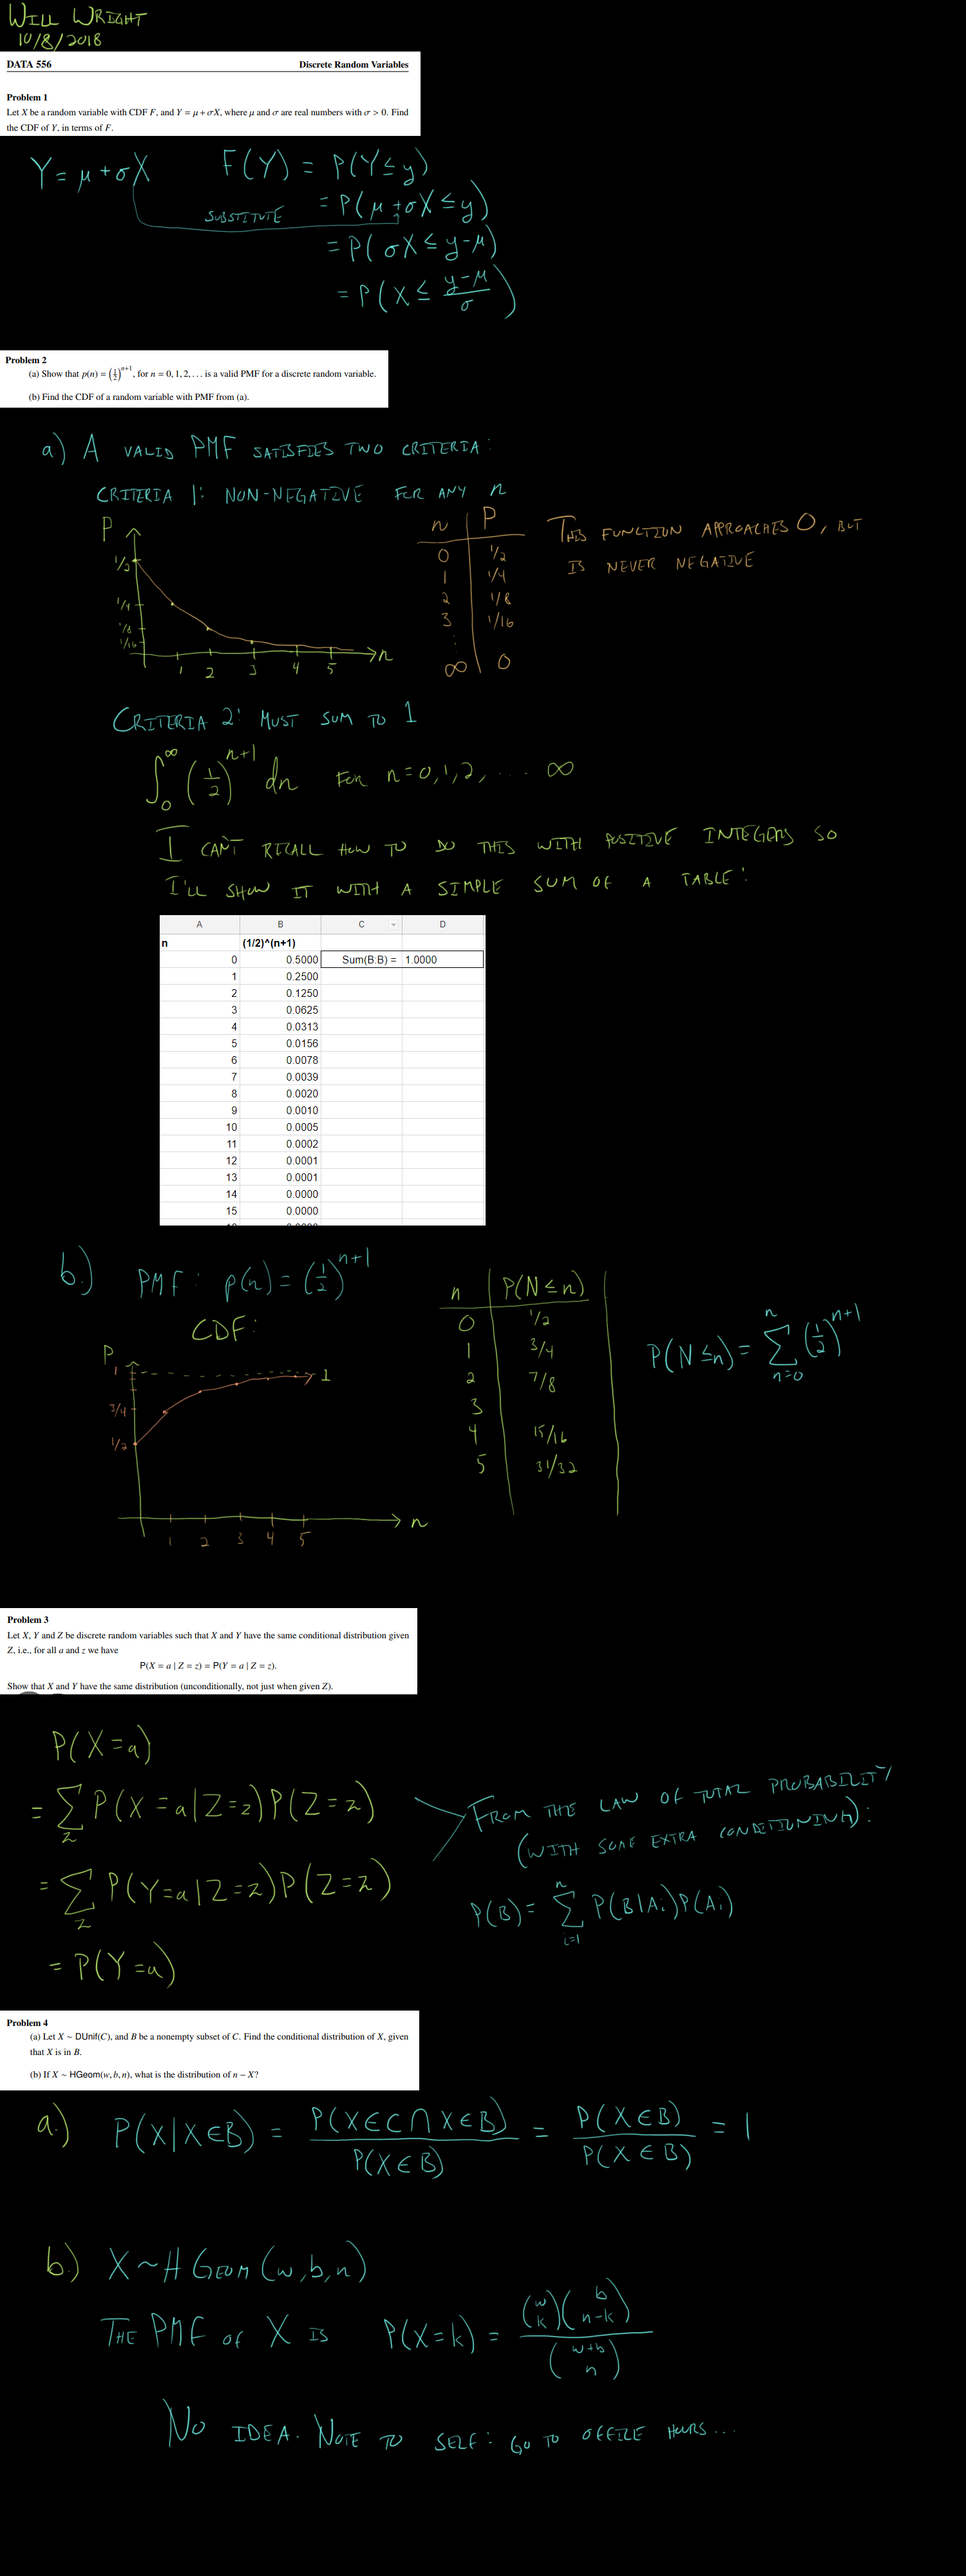 WILL WRIGHT
10/8/2018
DATA 556 Discrete Random Variables
Problem 1
Let X be a random variable with CDF F, and Y = μ + σX, where μ and σ are real numbers with σ > 0. Find
the CDF of Y, in terms of F.
Y = μ + σX F(Y) = P(Y ≤ y)
SUBSTITUTE = P(μ + σX ≤ y)
= P(σX ≤ y-μ)
= P(X ≤ (y-μ)/σ)
Problem 2
(a) Show that p(n) = (1/2)^(n+1), for n = 0, 1, 2, . . . is a valid PMF for a discrete random variable.
(b) Find the CDF of a random variable with PMF from (a).
a) A VALID PMF SATISFIES TWO CRITERIA:
CRITERIA 1: NON-NEGATIVE FOR ANY n
P
1/2
1/4
1/8
1/16
1 2 3 4 5 n
n P
0 1/2
1 1/4
2 1/8
3 1/16
⋮
∞ 0
THIS FUNCTION APPROACHES 0, BUT
IS NEVER NEGATIVE
CRITERIA 2: MUST SUM TO 1
∫₀^∞ (1/2)^(n+1) dn FOR n=0,1,2, ... ∞
I CAN'T RECALL HOW TO DO THIS WITH POSITIVE INTEGERS SO
I'LL SHOW IT WITH A SIMPLE SUM OF A TABLE:
A B C D
n (1/2)^(n+1)
0 0.5000 Sum(B:B) = 1.0000
1 0.2500
2 0.1250
3 0.0625
4 0.0313
5 0.0156
6 0.0078
7 0.0039
8 0.0020
9 0.0010
10 0.0005
11 0.0002
12 0.0001
13 0.0001
14 0.0000
15 0.0000
b.) PMF: p(n) = (1/2)^(n+1)
CDF:
P
1 1
3/4
1/2
1 2 3 4 5 n
n P(N ≤ n)
0 1/2
1 3/4
2 7/8
3
4 15/16
5 31/32
P(N ≤ n) = Σ_{n=0}^{n} (1/2)^(n+1)
Problem 3
Let X, Y and Z be discrete random variables such that X and Y have the same conditional distribution given
Z, i.e., for all a and z we have
P(X = a | Z = z) = P(Y = a | Z = z).
Show that X and Y have the same distribution (unconditionally, not just when given Z).
P(X=a)
= Σ_z P(X=a|Z=z)P(Z=z)
= Σ_z P(Y=a|Z=z)P(Z=z)
= P(Y=a)
FROM THE LAW OF TOTAL PROBABILITY
(WITH SOME EXTRA CONDITIONING):
P(B) = Σ_{i=1}^{n} P(B|Ai)P(Ai)
Problem 4
(a) Let X ~ DUnif(C), and B be a nonempty subset of C. Find the conditional distribution of X, given
that X is in B.
(b) If X ~ HGeom(w, b, n), what is the distribution of n − X?
a.) P(X|X∈B) = P(X∈C ∩ X∈B) / P(X∈B) = P(X∈B) / P(X∈B) = 1
b.) X~HGEOM(w,b,n)
THE PMF OF X IS P(X=k) = (w k)(b n-k) / (w+b n)
NO IDEA. NOTE TO SELF: GO TO OFFICE HOURS...